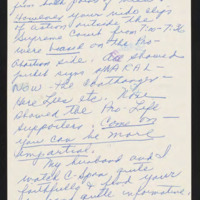 from both points of
However your video clips
of action outside the
Supreme Court from
were based on the Pro-
Abortion side. All showed
picket signs of NARAL -
NOW - the
etc. None
showed the Pro-Life
supporters. Come on -
you can be more
impartial.
My husband and I
watch C-Span quite
faithfully & find your
quite informative.